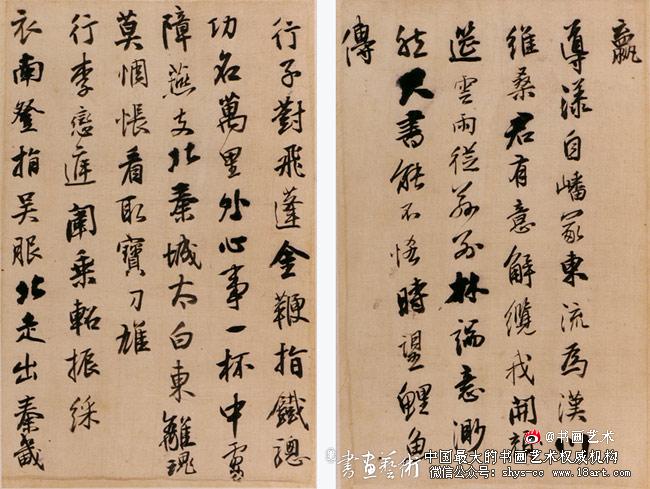 導漾自嶓冢東流為漢川
維桑君有意解纜我開
筵雲雨從茲別林端意渺
然尺書能不恡時望鯉魚
傳
行子對飛蓬金鞭指鐵驄
功名萬里外心事一杯中虜
障燕支北秦城太白東離魂
莫惆悵看取寶刀雄
行李戀庭闈乘軺振綵
衣南登指吳服北走出秦畿
@书画艺术
書畫藝術
中国最大的书画艺术权威机构
微信公众号: shys-cc www.18art.com